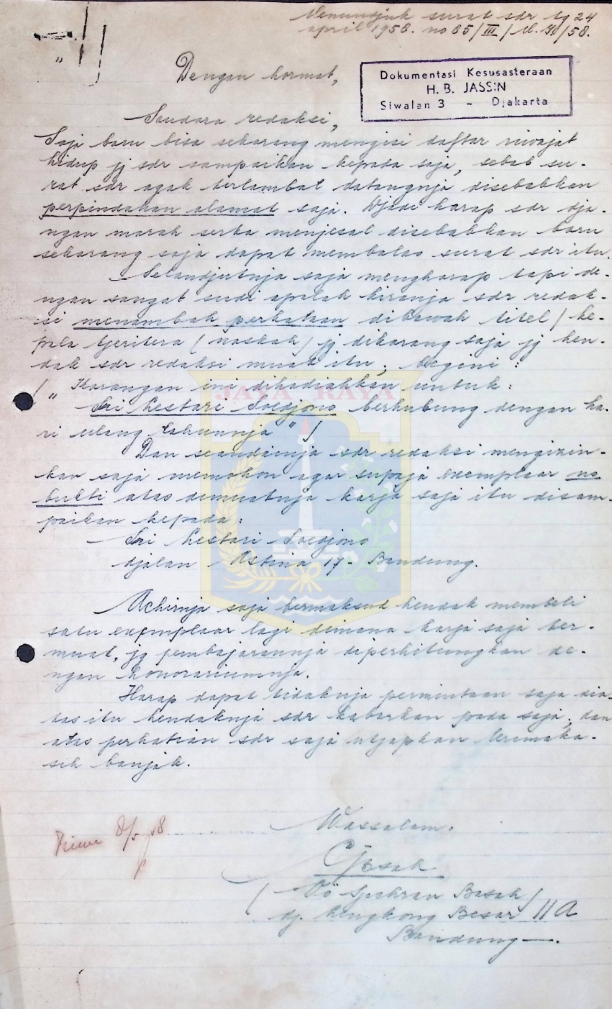 Menundjuk surat sdr tg 24
april 1958. no 85/III/
Dokumentasi Kesusasteraan
H. B. JASSIN
Siwalan 3 - Djakarta
Dengan hormat,
Saudara redaksi,
Saja baru bisa sekarang mengisi daftar riwajat
hidup jg sdr sampaikan kepada saja, sebab su-
rat sdr agak terlambat datangnja disebabkan
perpindahan alamat saja. Djadi harap sdr dja-
ngan marah serta menjesal disebabkan baru
sekarang saja dapat membalas surat sdr itu.
Selandjutnja saja mengharap tapi de-
ngan sangat sudi apalah kiranja sdr redak-
si menambah perkataan dibawah titel / ke-
pala tjeritera / naskah / jg dikarang saja jg hen-
dak sdr redaksi muat itu, begini:
/ " Karangan ini dihadiahkan untuk:
Sri Lestari Soedjono berhubung dengan ha-
ri ulang tahunnja " /
Dan seandainja sdr redaksi mengizin-
kan saja memohon agar supaja exemplaar
bukti atas dimuatnja karja saja itu disam-
paikan kepada:
Sri Lestari Soedjono
djalan Astina 17 - Bandung.
Achirnja saja bermaksud hendak membeli
satu exemplaar lagi dimana karja saja ter-
muat, jg pembajarannja diperhitungkan de-
ngan honorariumnja.
Harap dapat tidaknja permintaan saja dia-
tas itu hendaknja sdr kabarkan pada saja, dan
atas perhatian sdr saja utjapkan terimaka-
sih banjak.
Wassalam.
Basah /
dj. Lengkong Besar / 11A
Bandung.
JAYA RAYA